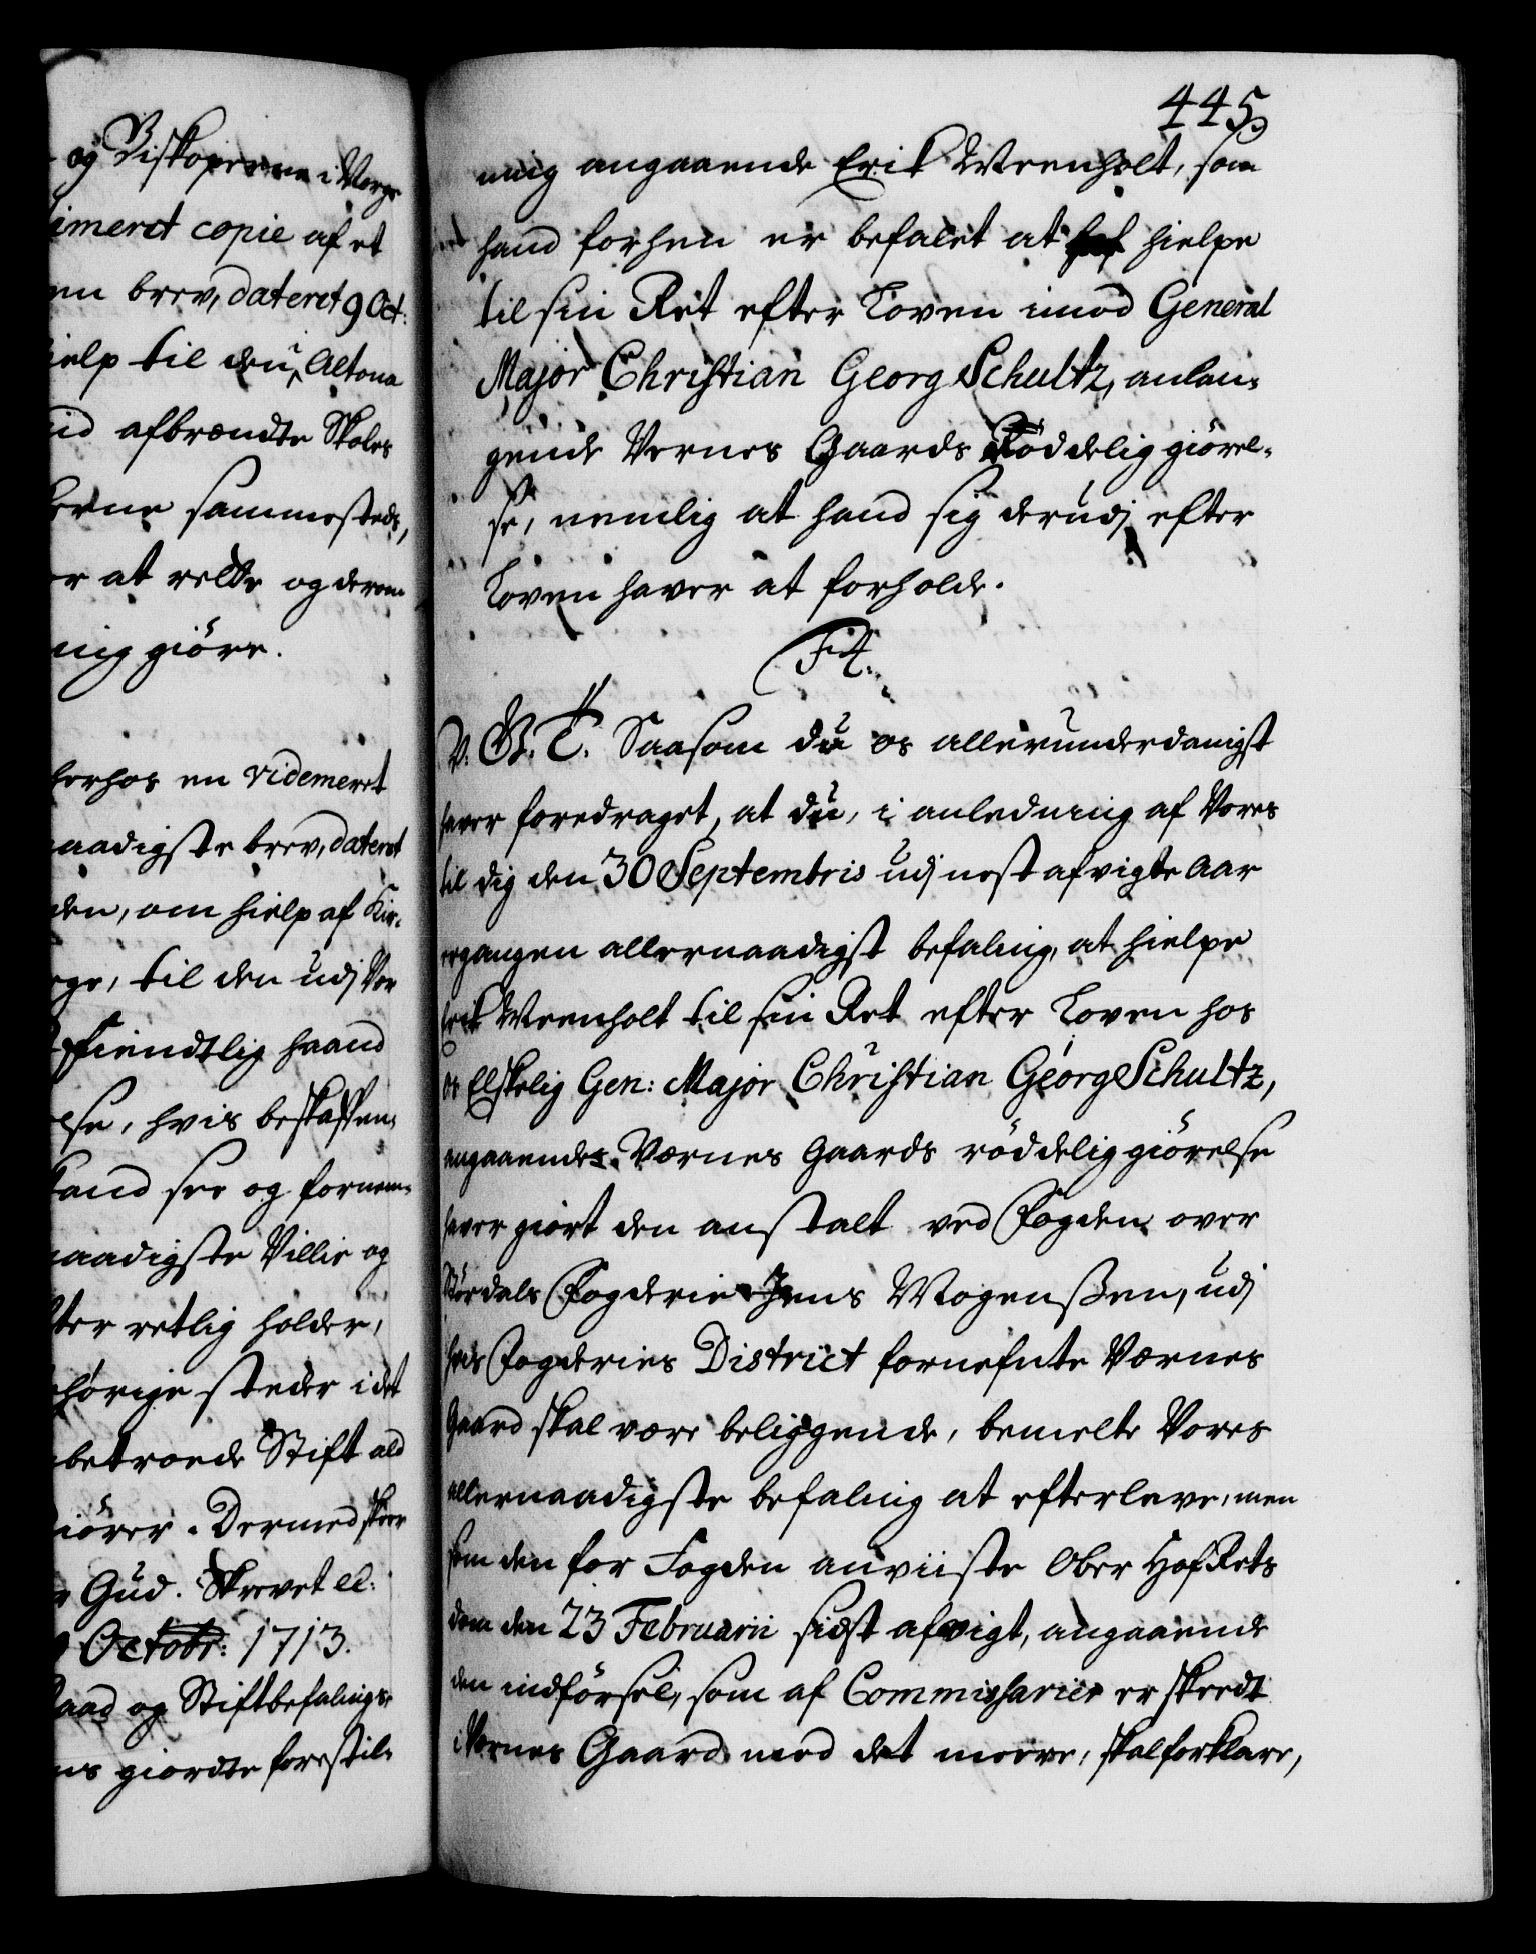 og Biskoperne i Norge
imeret copie af et
en brev, dateret 9 Oct:
ielp til den i Altona
id afbrændte Skoles
erne sammesteds,
er at rette og derom
nig giöre.
forhos en videmeret
aadigste brev, dateret
den, om hielp af Kir-
rge, til den udj Vor
fiendtlig haand
lse, hvis beskaffen-
kand see og fornem-
naadigste Villie og
fter retlig holder,
hörige steder i det
betroede Stift ald
giörer. Dermed skeer
Gud. Skrevet el:
9 Octobr: 1713.
Raad og Stiftbefalings-
ns giordte forestil-
445
ning angaaende Erik Weenholt, som
hand forhen er befalet at hielpe
til sin Ret efter Loven imod General
Major Christian Georg Schultz, anlan-
gende Vernes Gaards Röddeliggiörel-
se, nemlig at hand sig derudj efter
Loven haver at forholde.
F. 4.
V. G. T. Saasom du os allerunderdanigst
haver foredraget, at du, i anledning af Vores
til dig den 30 Septembris udj nest afvigte Aar
ergangen allernaadigst befaling, at hielpe
Erik Weenholt til sin Ret efter Loven hos
os Elskelig Gen: Major Christian Georg Schultz,
angaaendesVærnes Gaards röddeliggiörelse
haver giort den anstalt ved Fogden over
Stördals Fogderie Jens Mogenßen, udj
hvis Fogderies District fornefnte Værnes
Gaard skal være beliggende, bemelte Vores
allernaadigste befaling at efterleve, men
som den for Fogden anviiste Ober Hof Rets
dom den 23 Februarii sidst afvigt, angaaende
den indförsel, som af Commissarier er skeedt
i Vernes Gaard med det meere, skal forklare,